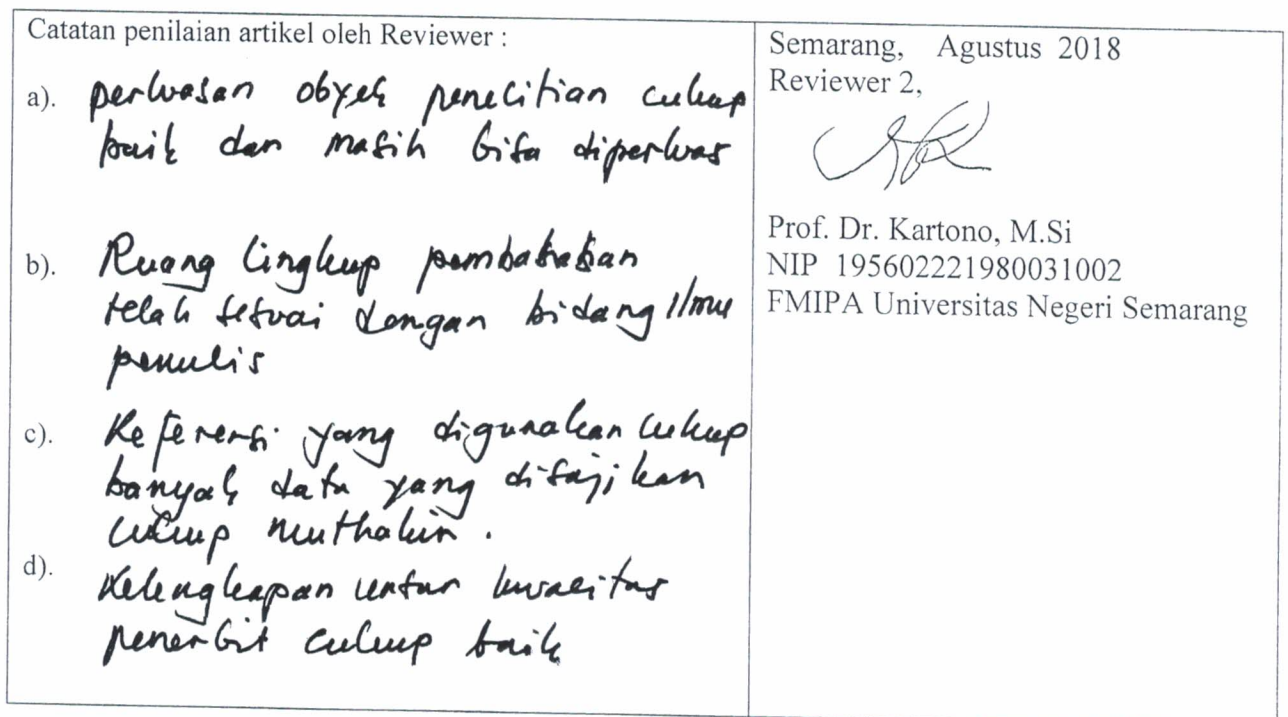 Catatan penilaian artikel oleh Reviewer :
a). perluasan obyek penelitian cukup
baik dan masih bisa diperluas
b). Ruang lingkup pembahasan
telah sesuai dengan bidang ilmu
penulis
c). Referensi yang digunakan cukup
banyak data yang disajikan
cukup muthakir.
d). Kelengkapan unsur kualitas
penerbit cukup baik
Semarang, Agustus 2018
Reviewer 2,
Prof. Dr. Kartono, M.Si
NIP 195602221980031002
FMIPA Universitas Negeri Semarang